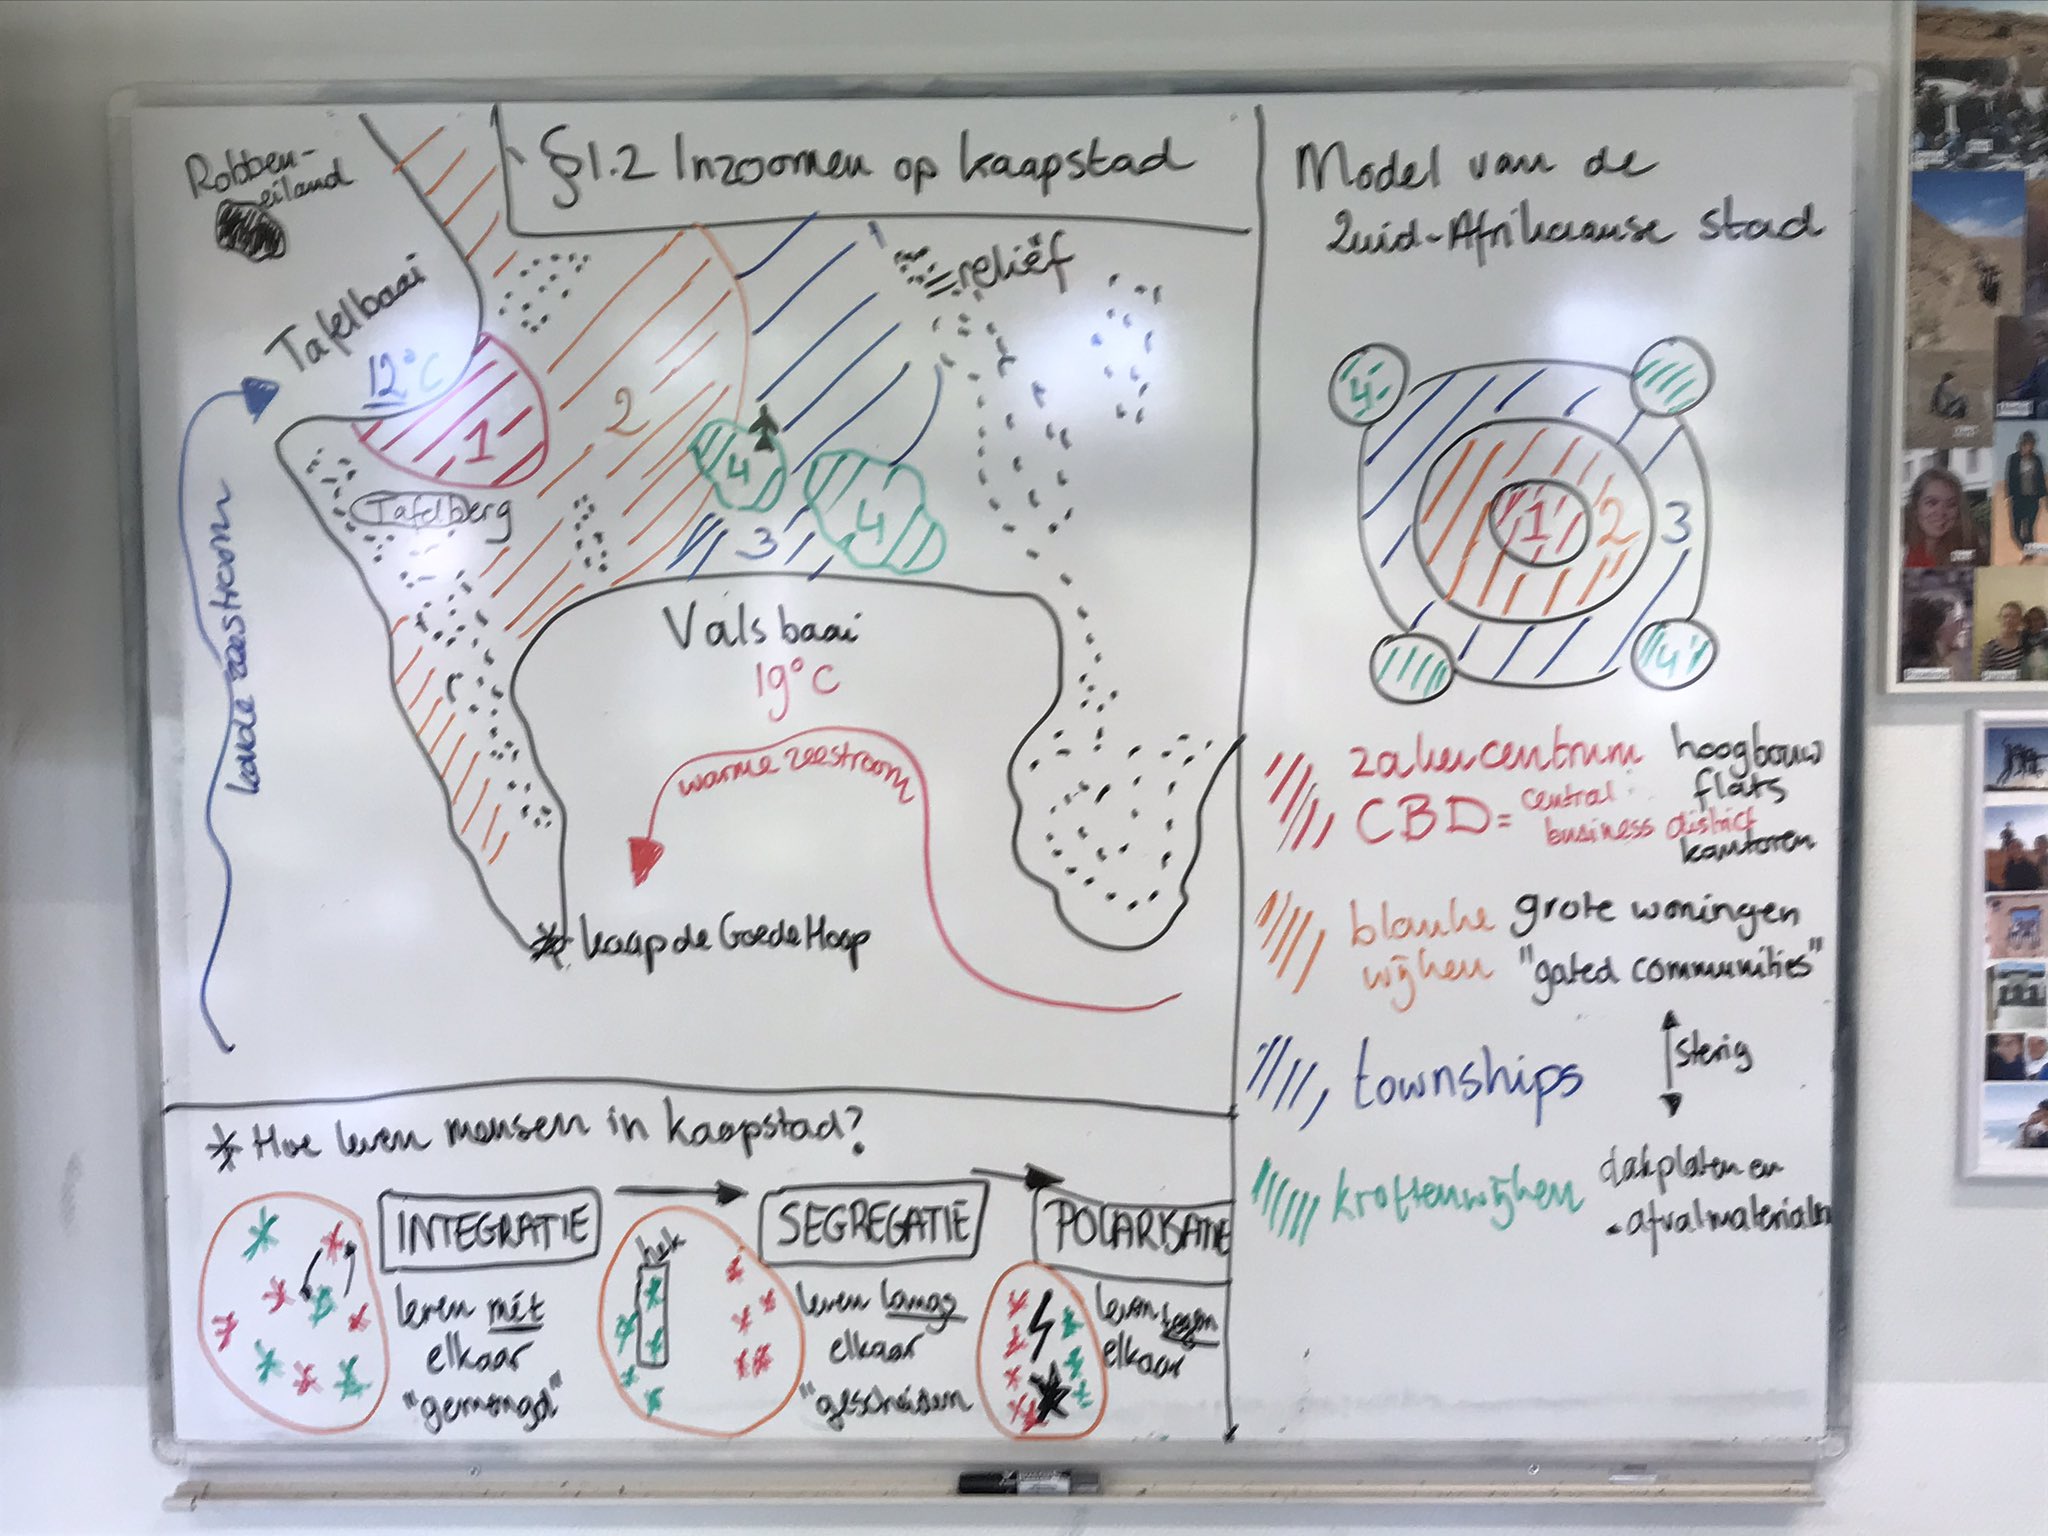 §1.2 Inzoomen op Kaapstad
Robben-
eiland
Tafelbaai
12°C
koude zeestroom
1
Tafelberg
2
reliëf
4
4
3
Valsbaai
19°C
warme zeestroom
Kaap de Goede Hoop
Model van de
Zuid-Afrikaanse stad
4
1
2
3
4
zakencentrum hoogbouw
flats
CBD = central
business district
kantoren
blanke grote woningen
wijken "gated communities"
townships
stenig
krottenwijken dakplaten en
afvalmaterialen
* Hoe leven mensen in Kaapstad?
INTEGRATIE
leven mét
elkaar
"gemengd"
hek
SEGREGATIE
leven langs
elkaar
"gescheiden
POLARISATIE
leven tegen
elkaar